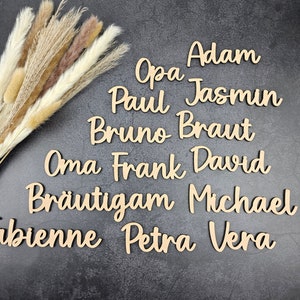 Adam
Opa
Jasmin
Paul
Bruno Braut
Oma Frank David
Bräutigam Michael
abienne Petra Vera